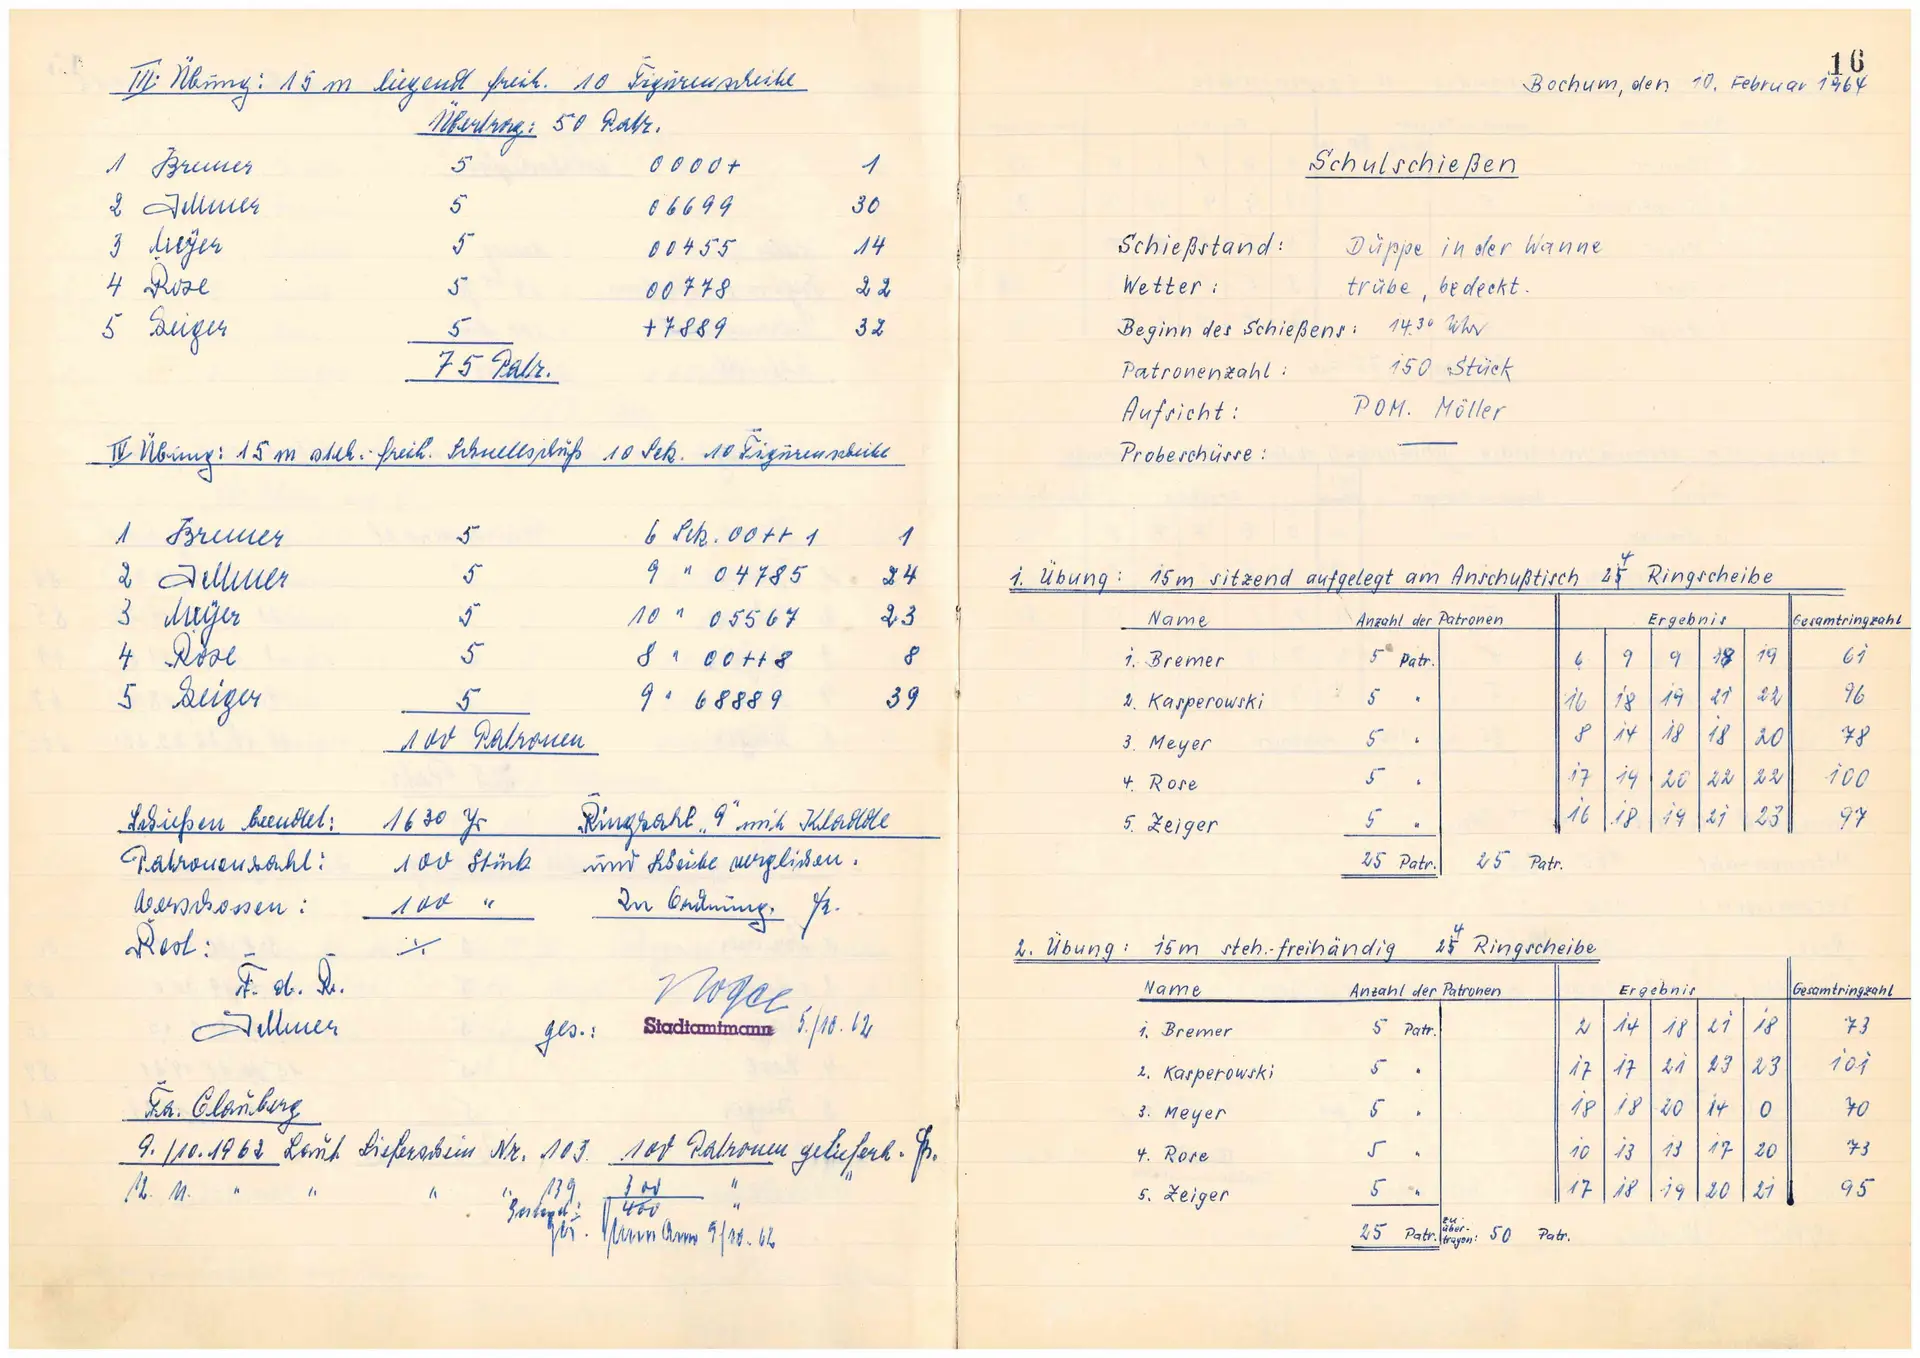 III. Übung: 15 m liegend freih. 10 Figurenscheibe
Übertrag: 50 Patr.
1 Bremer 5 0000+ 1
2 Jellmer 5 06699 30
3 Meyer 5 00455 14
4 Rose 5 00778 22
5 Zeiger 5 +7889 32
75 Patr.
IV Übung: 15 m steh.-freih. Schnellschuß 10 Sek. 10 Figurenscheibe
1 Bremer 5 6 Sek. 00++1 1
2 Jellmer 5 9 " 04785 24
3 Meyer 5 10 " 05567 23
4 Rose 5 8 " 00++8 8
5 Zeiger 5 9 " 68889 39
100 Patronen
Schießen beendet: 1630 Uhr "Ringzahl „9" mit Kladde
Patronenzahl: 100 Stück und Scheibe verglichen.
Verschossen: 100 " In Ordnung.
Rest: ./.
F. d. R.
Jellmer ges.: Stadtamtmann 5./10.62
Fa. Clauberg
9./10.1962 Laut Lieferschein Nr. 103 100 Patronen geliefert.
12. 11. " " " " 139 300 "
Bestand: 400 "
9/10.62
16
Bochum, den 10. Februar 1964
Schulschießen
Schießstand: Düppe in der Wanne
Wetter: trübe, bedeckt.
Beginn des Schießens: 14.30 Uhr
Patronenzahl: 150 Stück
Aufsicht: POM. Möller
Probeschüsse: —
1. Übung: 15m sitzend aufgelegt am Anschußtisch 24 Ringscheibe
Name Anzahl der Patronen Ergebnis Gesamtringzahl
1. Bremer 5 Patr. 6 9 9 18 19 61
2. Kasperowski 5 " 16 18 19 21 22 96
3. Meyer 5 " 8 14 18 18 20 78
4. Rose 5 " 17 19 20 22 22 100
5. Zeiger 5 " 16 18 19 21 23 97
25 Patr. 25 Patr.
2. Übung: 15m steh.-freihändig 24 Ringscheibe
Name Anzahl der Patronen Ergebnis Gesamtringzahl
1. Bremer 5 Patr. 2 14 18 21 18 73
2. Kasperowski 5 " 17 17 21 23 23 101
3. Meyer 5 " 18 18 20 14 0 70
4. Rose 5 " 10 13 13 17 20 73
5. Zeiger 5 " 17 18 19 20 21 95
25 Patr. zu übertragen: 50 Patr.